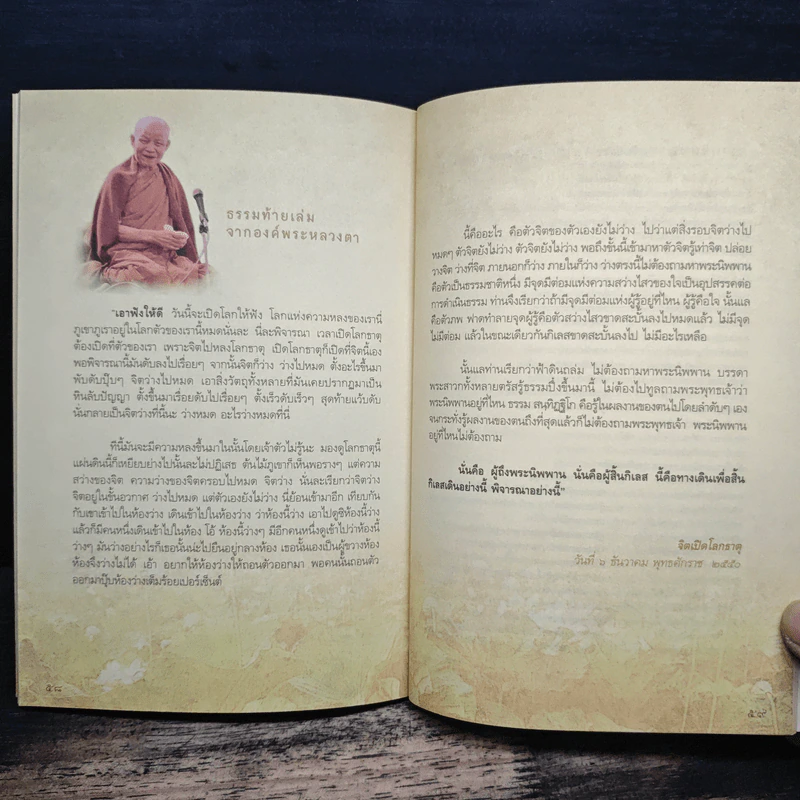 ธรรมท้ายเล่ม
จากองค์พระหลวงตา
"เอาฟังให้ดี วันนี้จะเปิดโลกให้ฟัง โลกแห่งความหลงของเรานี่
ภูเขาภูเราอยู่ในโลกตัวของเรานี้หมดนั่นละ นี่ละพิจารณา เวลาเปิดโลกธาตุ
ต้องเปิดที่ตัวของเรา เพราะจิตไปหลงโลกธาตุ เปิดโลกธาตุก็เปิดที่จิตนี้เอง
พอพิจารณานี้มันดับลงไปเรื่อยๆ จากนั้นจิตก็ว่าง ว่างไปหมด ตั้งอะไรขึ้นมา
พับดับปุ๊บๆ จิตว่างไปหมด เอาสิ่งวัตถุทั้งหลายที่มันเคยปรากฏมาเป็น
หินลับปัญญา ตั้งขึ้นมาเรื่อยดับไปเรื่อยๆ ตั้งเร็วดับเร็วๆ สุดท้ายแว้บดับ
นั่นกลายเป็นจิตว่างที่นี่นะ ว่างหมด อะไรว่างหมดที่นี่
ทีนี้มันจะมีความหลงขึ้นมาในนั้นโดยเจ้าตัวไม่รู้นะ มองดูโลกธาตุนี้
แผ่นดินนี้ก็เหยียบย่างไปนั้นละไม่ปฏิเสธ ต้นไม้ภูเขาก็เห็นพอรางๆ แต่ความ
สว่างของจิต ความว่างของจิตครอบไปหมด จิตว่าง นั่นละเรียกว่าจิตว่าง
จิตอยู่ในชั้นอวกาศ ว่างไปหมด แต่ตัวเองยังไม่ว่าง นี่ย้อนเข้ามาอีก เทียบกัน
กับเขาเข้าไปในห้องว่าง เดินเข้าไปในห้องว่าง ว่าห้องนี้ว่าง เอาไปดูซิห้องนี้ว่าง
แล้วก็มีคนหนึ่งเดินเข้าไปในห้อง โอ้ ห้องนี้ว่างๆ มีอีกคนหนึ่งดูเข้าไปว่าห้องนี้
ว่างๆ มันว่างอย่างไรก็เธอนั้นน่ะไปยืนอยู่กลางห้อง เธอนั้นเองเป็นผู้ขวางห้อง
ห้องจึงว่างไม่ได้ เอ้า อยากให้ห้องว่างให้ถอนตัวออกมา พอคนนั้นถอนตัว
ออกมาปุ๊บห้องว่างเต็มร้อยเปอร์เซ็นต์
๕๘
นี้คืออะไร คือตัวจิตของตัวเองยังไม่ว่าง ไปว่าแต่สิ่งรอบจิตว่างไป
หมดๆ ตัวจิตยังไม่ว่าง ตัวจิตยังไม่ว่าง พอถึงขั้นนี้เข้ามาหาตัวจิตรู้เท่าจิต ปล่อย
วางจิต ว่างที่จิต ภายนอกก็ว่าง ภายในก็ว่าง ว่างตรงนี้ไม่ต้องถามหาพระนิพพาน
คือตัวเป็นธรรมชาติหนึ่ง มีจุดมีต่อมแห่งความสว่างไสวของใจเป็นอุปสรรคต่อ
การดำเนินธรรม ท่านจึงเรียกว่าถ้ามีจุดมีต่อมแห่งผู้รู้อยู่ที่ไหน ผู้รู้คือใจ นั้นแล
คือตัวภพ ฟาดทำลายจุดผู้รู้คือตัวสว่างไสวขาดสะบั้นลงไปหมดแล้ว ไม่มีจุด
ไม่มีต่อม แล้วในขณะเดียวกันกิเลสขาดสะบั้นลงไป ไม่มีอะไรเหลือ
นั้นแลท่านเรียกว่าฟ้าดินถล่ม ไม่ต้องถามหาพระนิพพาน บรรดา
พระสาวกทั้งหลายตรัสรู้ธรรมปึ๋งขึ้นมานี้ ไม่ต้องไปทูลถามพระพุทธเจ้าว่า
พระนิพพานอยู่ที่ไหน ธรรม สนฺทิฏฺฐิโก คือรู้ในผลงานของตนไปโดยลำดับๆ เอง
จนกระทั่งรู้ผลงานของตนถึงที่สุดแล้วก็ไม่ต้องถามพระพุทธเจ้า พระนิพพาน
อยู่ที่ไหนไม่ต้องถาม
นั่นคือ ผู้ถึงพระนิพพาน นั่นคือผู้สิ้นกิเลส นี้คือทางเดินเพื่อสิ้น
กิเลสเดินอย่างนี้ พิจารณาอย่างนี้"
จิตเปิดโลกธาตุ
วันที่ ๖ ธันวาคม พุทธศักราช ๒๕๕๐
๕๙